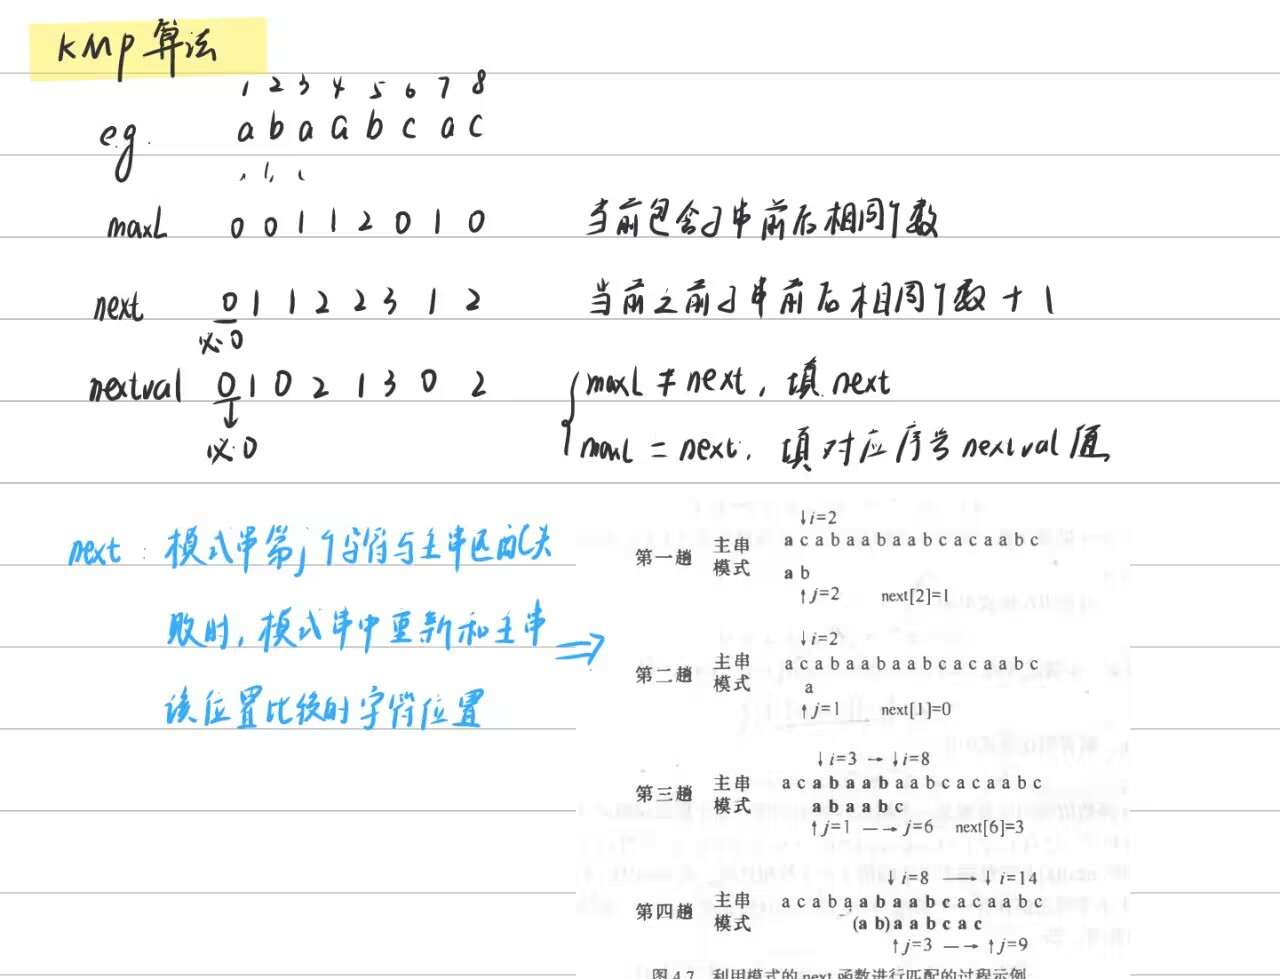 KMP算法
1 2 3 4 5 6 7 8
eg. a b a a b c a c
maxL 0 0 1 1 2 0 1 0 当前包含子串前后相同个数
next 0 1 1 2 2 3 1 2 当前之前子串前后相同个数+1
必0
nextval 0 1 0 2 1 3 0 2 maxL ≠ next, 填next
必0 maxL = next, 填对应序号nextval值
next: 模式串第j个字符与主串匹配失
败时, 模式串中重新和主串
该位置比较的字符位置
↓i=2
第一趟 主串 a c a b a a b a a b c a c a a b c
模式 a b
↑j=2 next[2]=1
↓i=2
第二趟 主串 a c a b a a b a a b c a c a a b c
模式 a
↑j=1 next[1]=0
↓i=3 → ↓i=8
第三趟 主串 a c a b a a b a a b c a c a a b c
模式 a b a a b c
↑j=1 —→ j=6 next[6]=3
↓i=8 —→ ↓i=14
第四趟 主串 a c a b a a b a a b c a c a a b c
模式 (a b) a a b c a c
↑j=3 —→ ↑j=9
图 4.7 利用模式的 next 函数进行匹配的过程示例